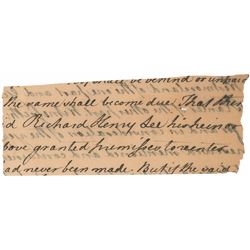 shall be behind or unpaid
the same shall become due. That then
d Richard Henry Lee his heirs or
bove granted premises to reenter
ad never been made. But if the said